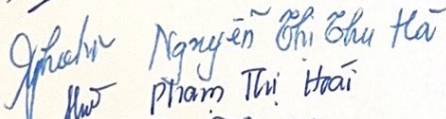 Nguyễn Thị Thu Hà
Phạm Thị Hoài